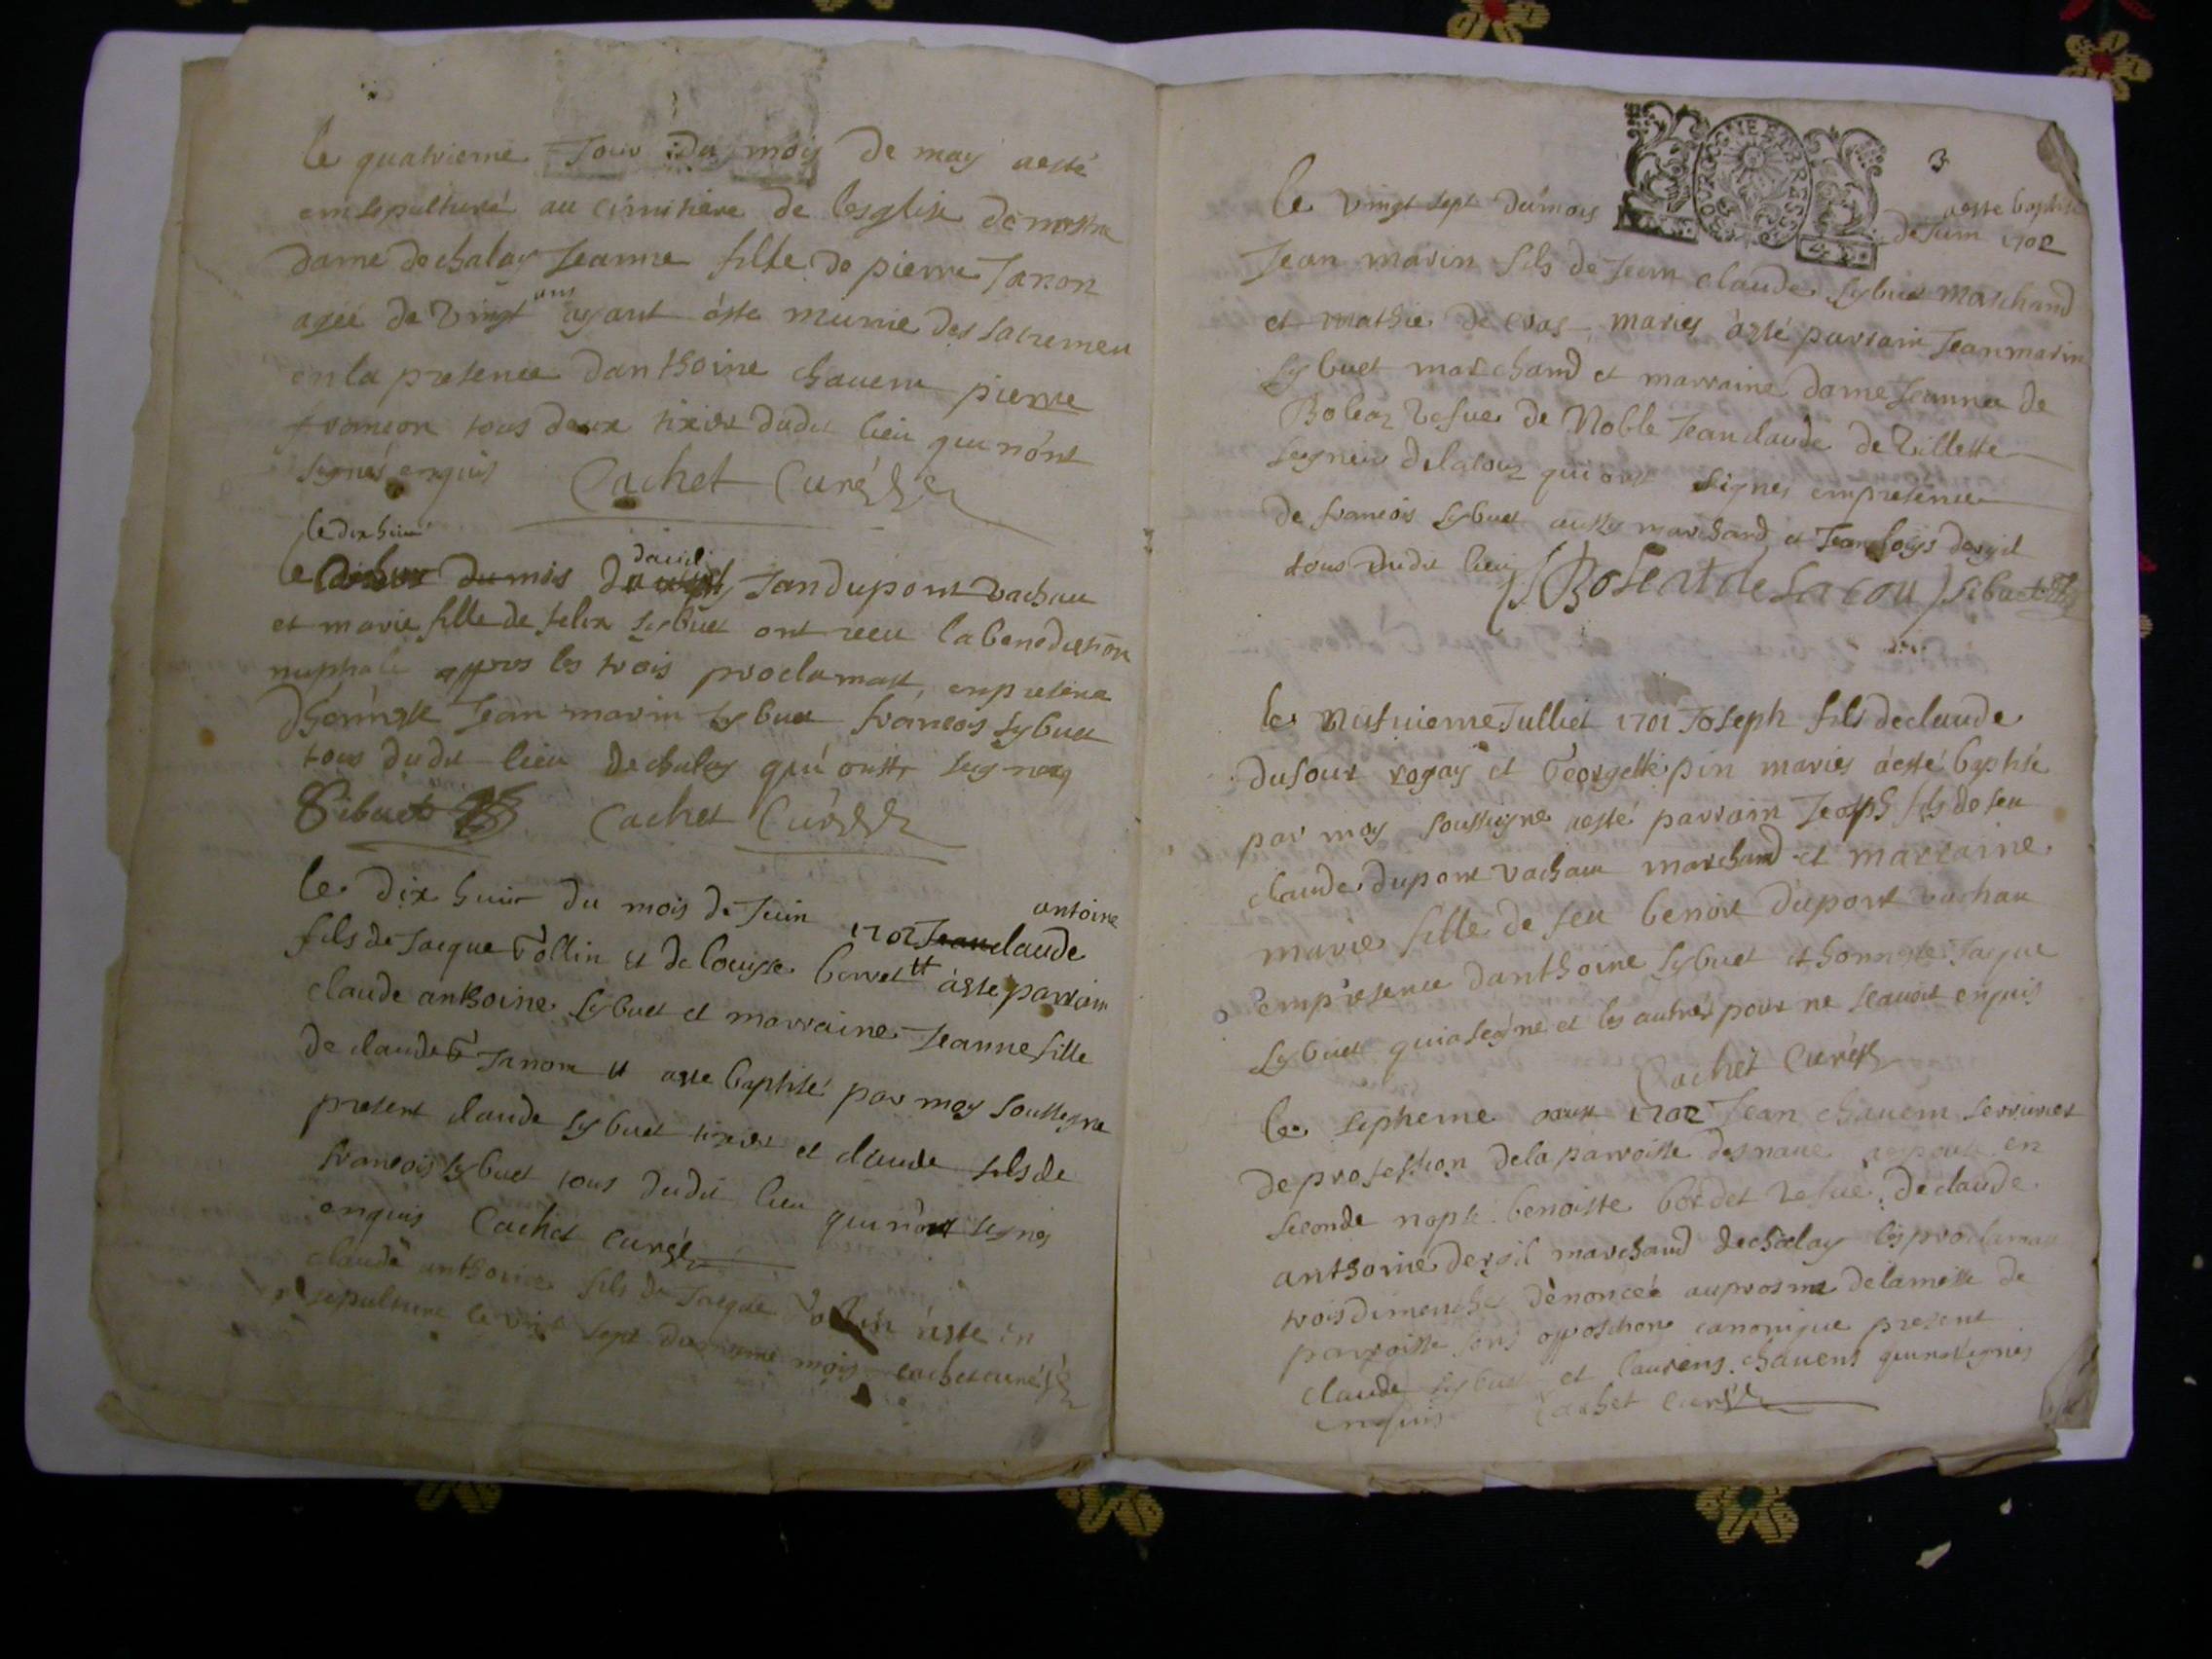 le quatrieme Jour du mois de may aesté
ensepulturé au cimitiere de lesglise de nostre
dame de chaley Jeanne fille de pierre Janon
agée de vingt ans ayant éste munie des sacremen
en la presence danthoine chauem pierre
françon tous deux tixier dudit lieu qui nont
signés enquis Cachet Curé
le dix huit
du mis davril Jan dupont vachau
et marie fille de felix sybuet ont receu la benediction
nuptiale appres les trois proclamatt, en presence
dhonneste Jean marin sybuet francois sybuet
tous dudit lieu de chaley qui ont signes
Sibuet Cachet Curé
le dix huit du mois de Juin 1702 Jean claude antoine
fils de Jacque Tollin et de louyse berret a este parrain
claude anthoine sybuet et marraine Jeanne fille
de claude Janon et a este baptisé par moy soussigne
present claude sybuet tixier et claude fils de
francois sybuet tous dudit lieu qui nont signes
enquis Cachet curé
claude anthoine fils de Jacque Tollin a este en
sepulture le vint sept du mesme mois cachet curé
3
le vingt sept du mois de Juin 1702 aeste baptisé
Jean marin fils de Jean claude sybuet marchand
et mathie de cras maries a esté parrain Jean marin
sybuet marchand et marraine dame Jeanne de
vefue de Noble Jean claude de Villette
seigneur delacoux qui ont signes en presence
de francois sybuet aussy marchand et Jean loys dergil
tous dudit lieu Sibuet
le Juilliet 1702 Joseph fils de claude
dufour rogay et Georgette pin maries a esté baptisé
par moy soussigne aesté parrain Joseph fils de feu
claude dupont vachau marchand et marraine
marie fille de feu benoit dupont vachau
en presence danthoine sybuet et honneste Jacque
sybuet qui a segné et les autres pour ne scauoir enquis
Cachet Curé
le septieme aoust 1702 Jean chauem serrurier
de profession de la parroisse desnaue a espouse en
seconde nopse benoiste bordet vefue de claude
anthoine dergil marchand de chaley les proclamatt
trois dimenche denoncée au prosne de la messe de
parroisse sens opposition canonique present
claude sybuet et laurens chauent qui nont signes
enquis Cachet curé